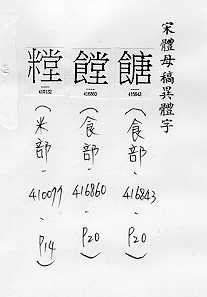 宋體母稿異體字
餹
416843
(食部、416843、P20)
餳
416860
(食部、416860、P20)
糛
(米部、410077、P14)